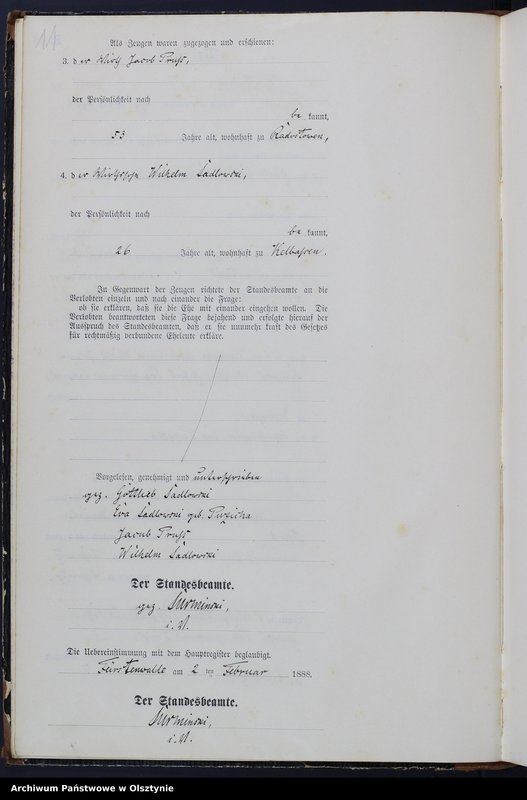 Als Zeugen waren zugezogen und erschienen:
3. der Wirth Jacob Pruss,
der Persönlichkeit nach
be kannt,
53 Jahre alt, wohnhaft zu Radostowen,
4. der Wirthssohn Wilhelm Sadlowski,
der Persönlichkeit nach
be kannt,
26 Jahre alt, wohnhaft zu Kelbassen.
In Gegenwart der Zeugen richtete der Standesbeamte an die
Verlobten einzeln und nach einander die Frage:
ob sie erklären, daß sie die Ehe mit einander eingehen wollen. Die
Verlobten beantworteten diese Frage bejahend und erfolgte hierauf der
Ausspruch des Standesbeamten, daß er sie nunmehr kraft des Gesetzes
für rechtmäßig verbundene Eheleute erkläre.
Vorgelesen, genehmigt und unterschrieben
gez. Gottlieb Sadlowski
Eva Sadlowski geb. Puzicha
Jacob Pruss
Wilhelm Sadlowski
Der Standesbeamte.
gez. Surminski,
i. V.
Die Uebereinstimmung mit dem Hauptregister beglaubigt.
Fürstenwalde am 2 ten Februar 1888.
Der Standesbeamte.
Surminski,
i. V.
Archiwum Państwowe w Olsztynie